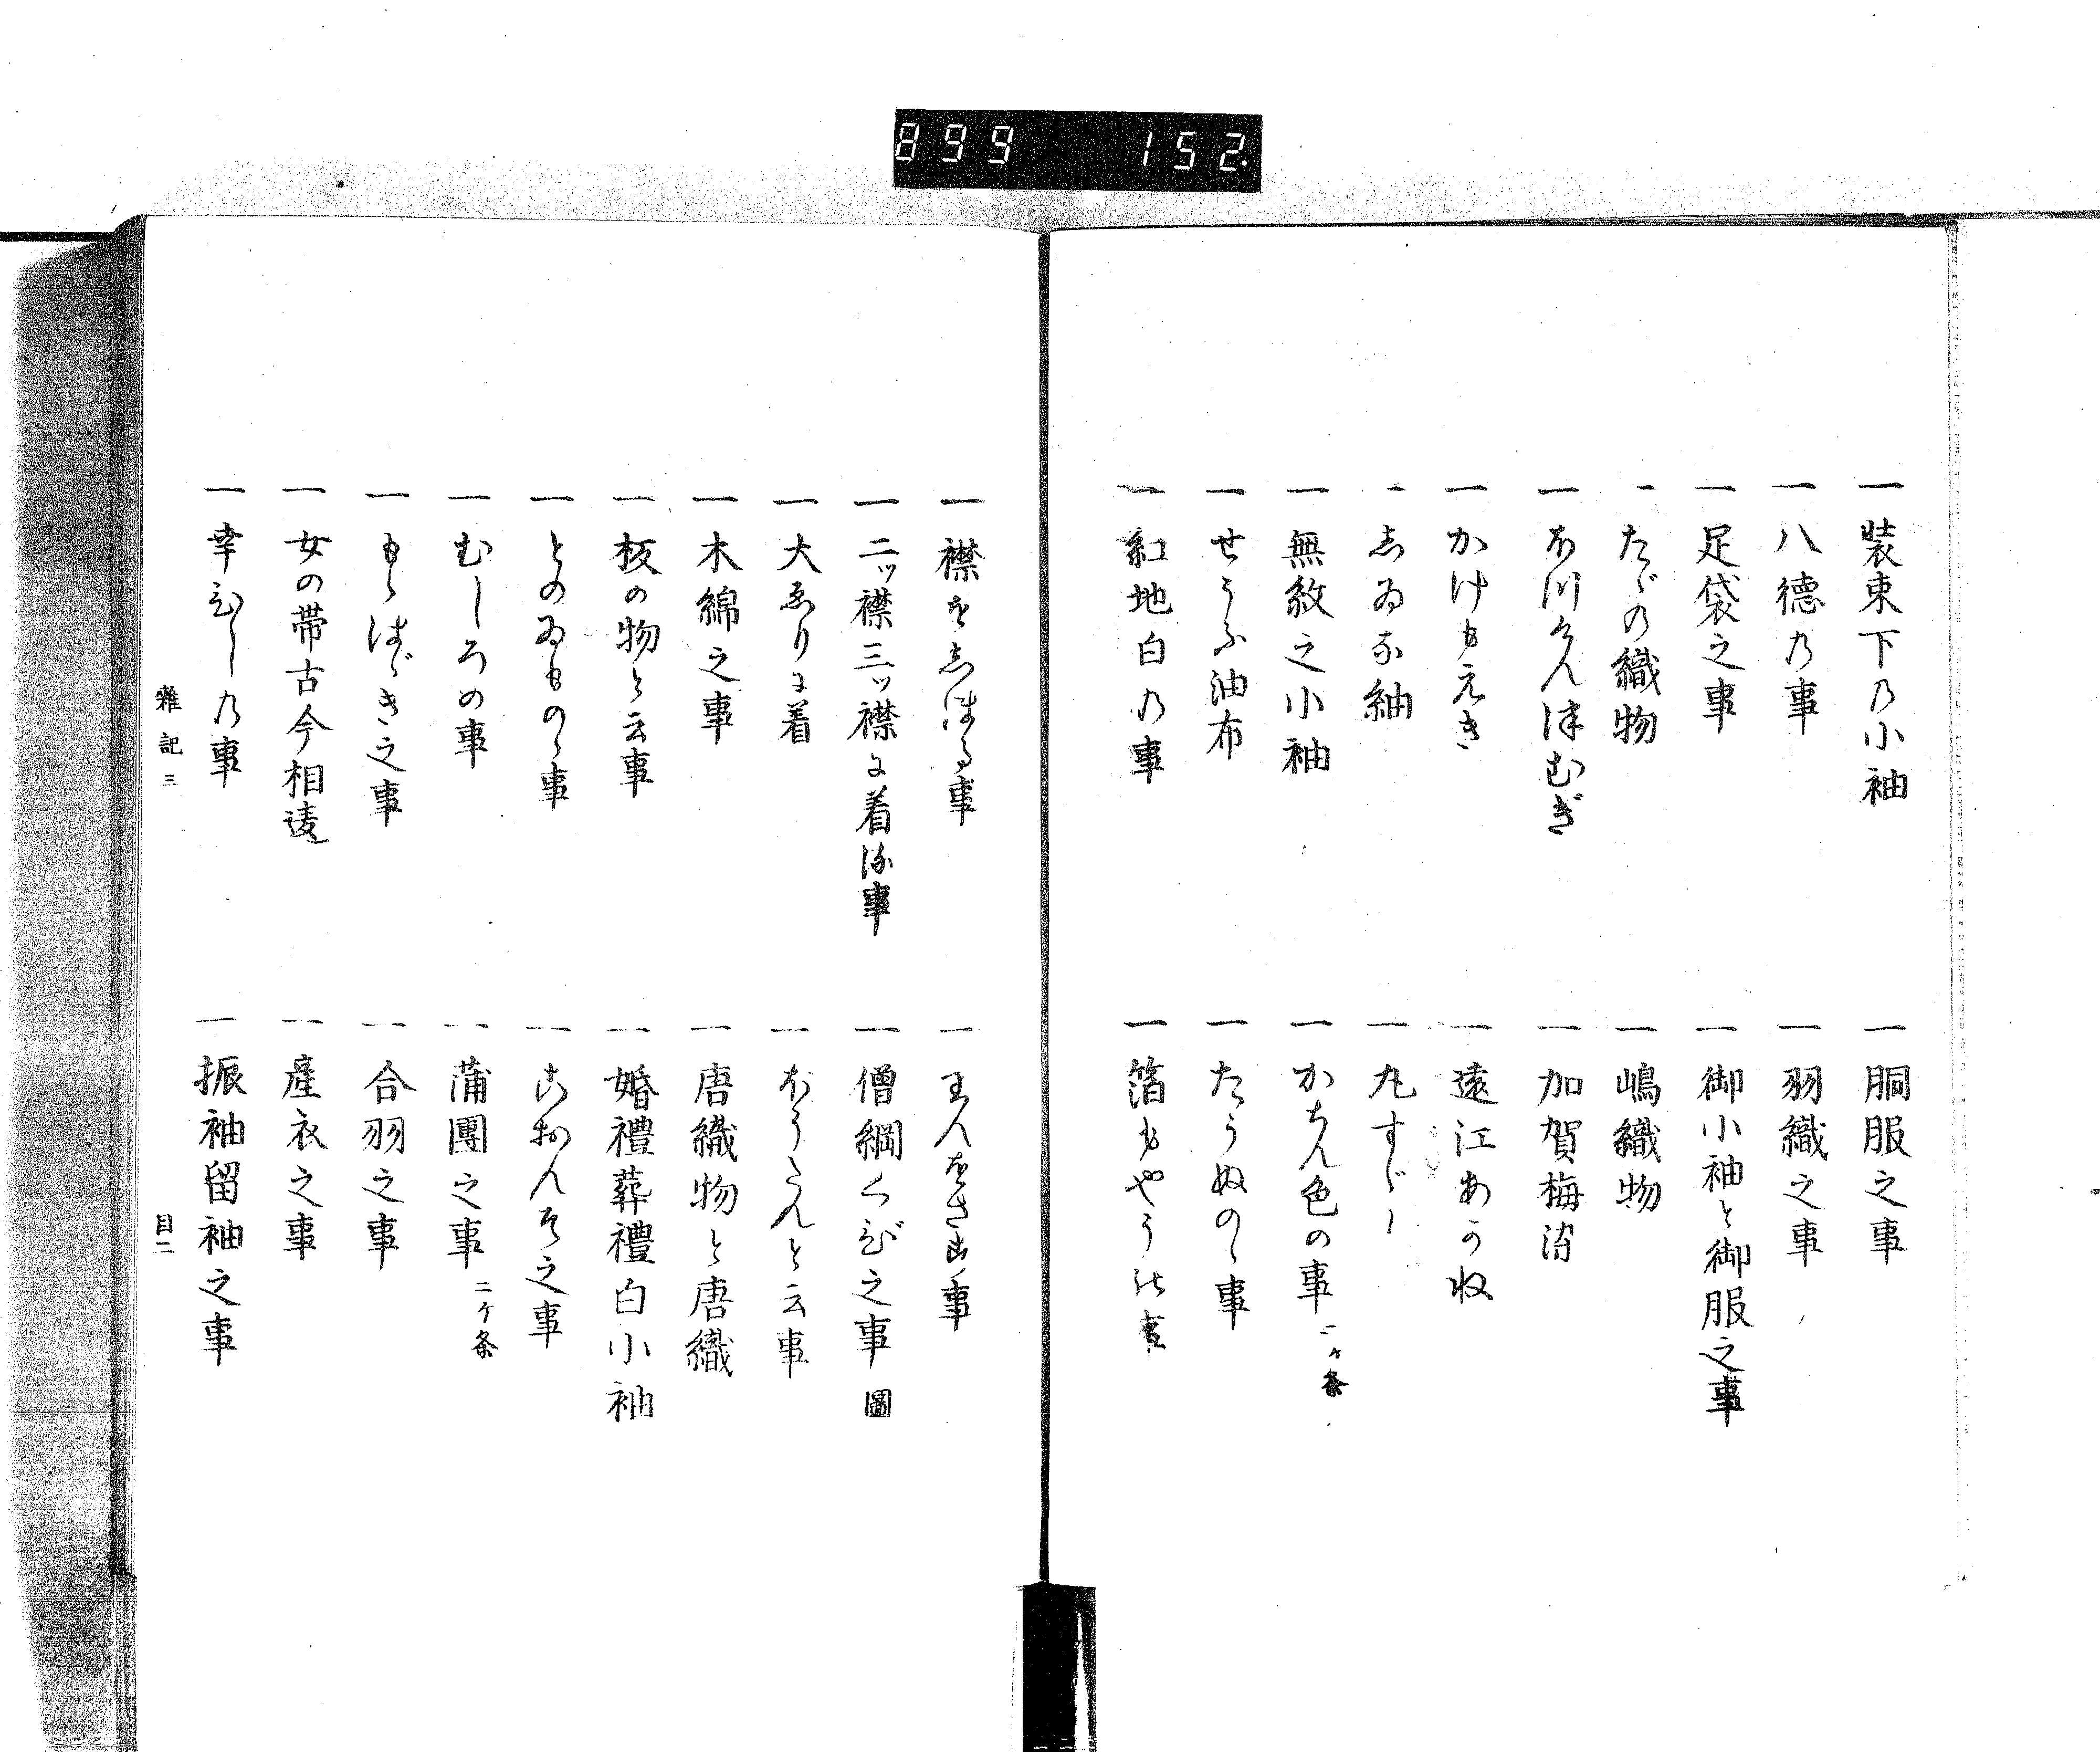 899 152.
一 装束下乃小袖 一 胴服之事
一 八徳乃事 一 羽織之事
一 足袋之事 一 御小袖と御服之事
一 たゞの織物 一 嶋織物
一 ほつけんつむぎ 一 加賀梅染
一 かけもえき 一 遠江
一 志ゐな紬 一 丸すゞし
一 無紋之小袖 一 かちん色の事 二ケ条
一 せうふ油布 一 たうぬのゝ事
一 紅地白乃事 一 箔もやうの事
一 襟を 事 一
一 二ッ襟三ッ襟に着る事 一 僧綱くび之事 圖
一 大ゑりに着 一 と云事
一 木綿之事 一 唐織物と唐織
一 板の物と云事 一 婚禮葬禮白小袖
一 とのゐものゝ事 一 之事
一 むしろの事 一 蒲團之事 二ケ条
一 もゝはゞき之事 一 合羽之事
一 女の帯古今相違 一 産衣之事
一 幸ひし乃事 一 振袖留袖之事
雜記三 目二